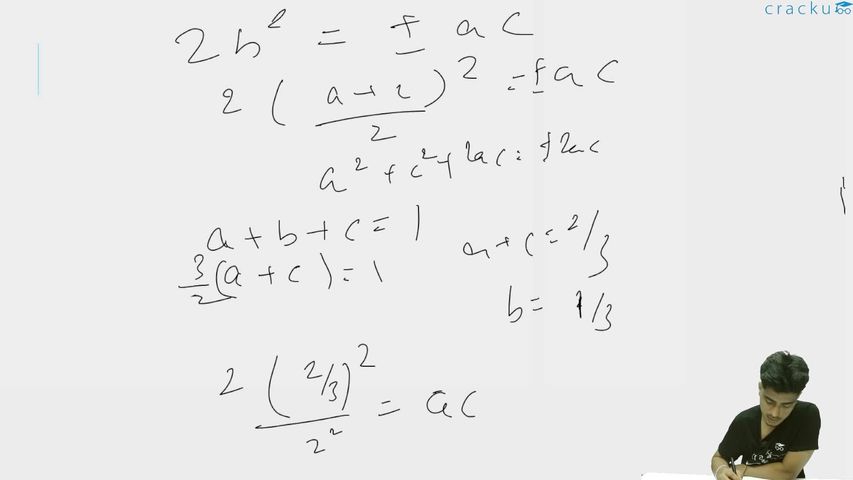 cracku
2b² = ± ac
2 ( a + c / 2 )² = ± ac
a² + c² + 2ac = ± 2ac
a + b + c = 1
a + c = 2/3
3/2 (a + c) = 1
b = 1/3
2 (2/3)² / 2² = ac